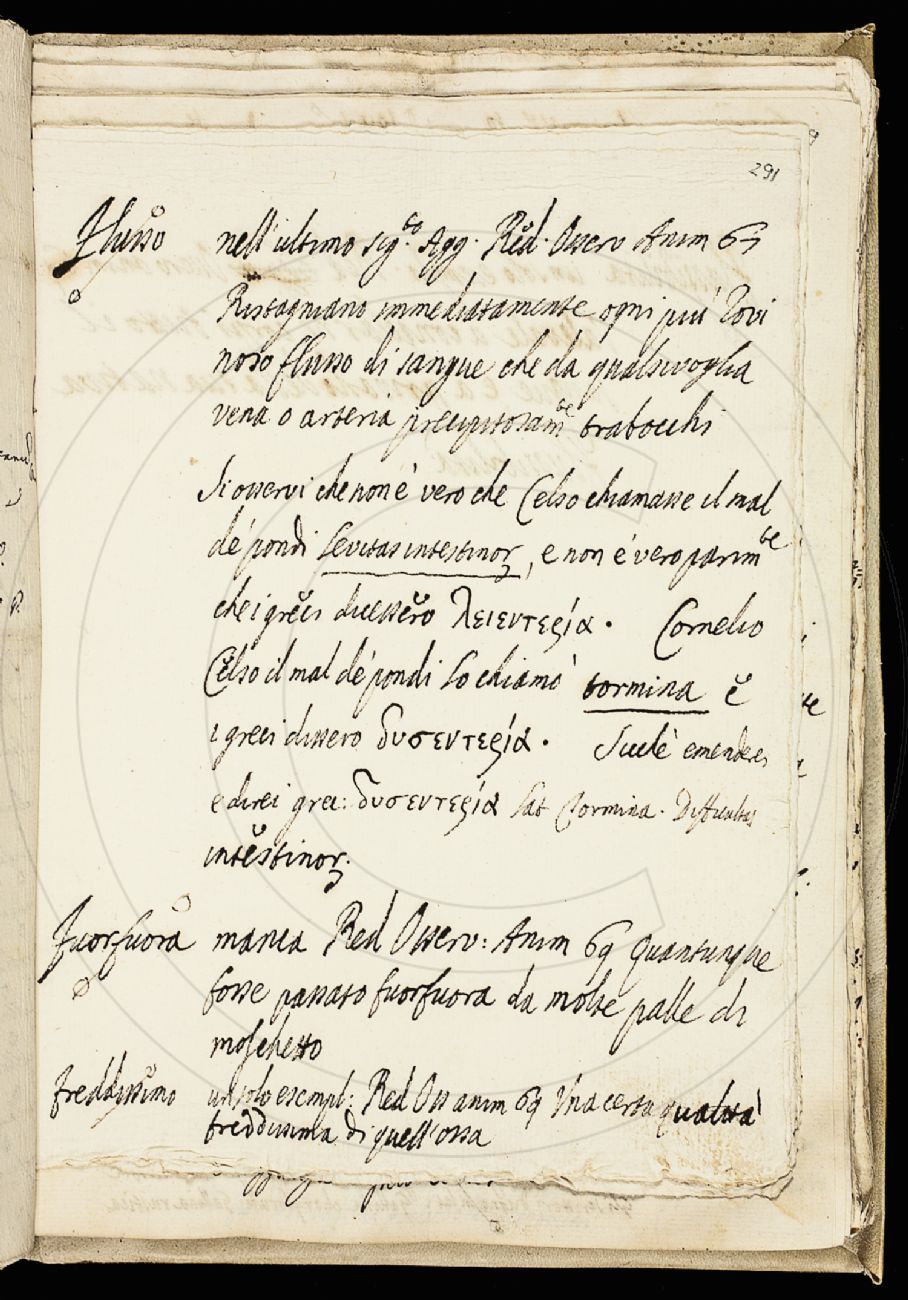 291
Flusso nell'ultimo sig.to Agg. Red. Osserv Anim 67
Ristagniano immediatamente ogni più Rovi
noso flusso di sangue che da qualsivoglia
vena o arteria precipitosam.te trabocchi
Si osservi che non è vero che Celso chiamasse il mal
de' pondi Levitas intestinor, e non è vero parim.te
che i greci dicessero λειεντερία. Cornelio
Celso il mal de' pondi lo chiamò tormina e
i greci dissero δυσεντερία. Sicché emenderei
e direi grec: δυσεντερία Lat Tormina. Difficultas
intestinor.
fuorfuora manca Red Osserv: Anim 69 Quantunque
fosse passato fuorfuora da molte palle di
moschetto
freddissimo un solo esempl: Red Oss anim 69 Una certa qualità
freddissima di quell'ossa